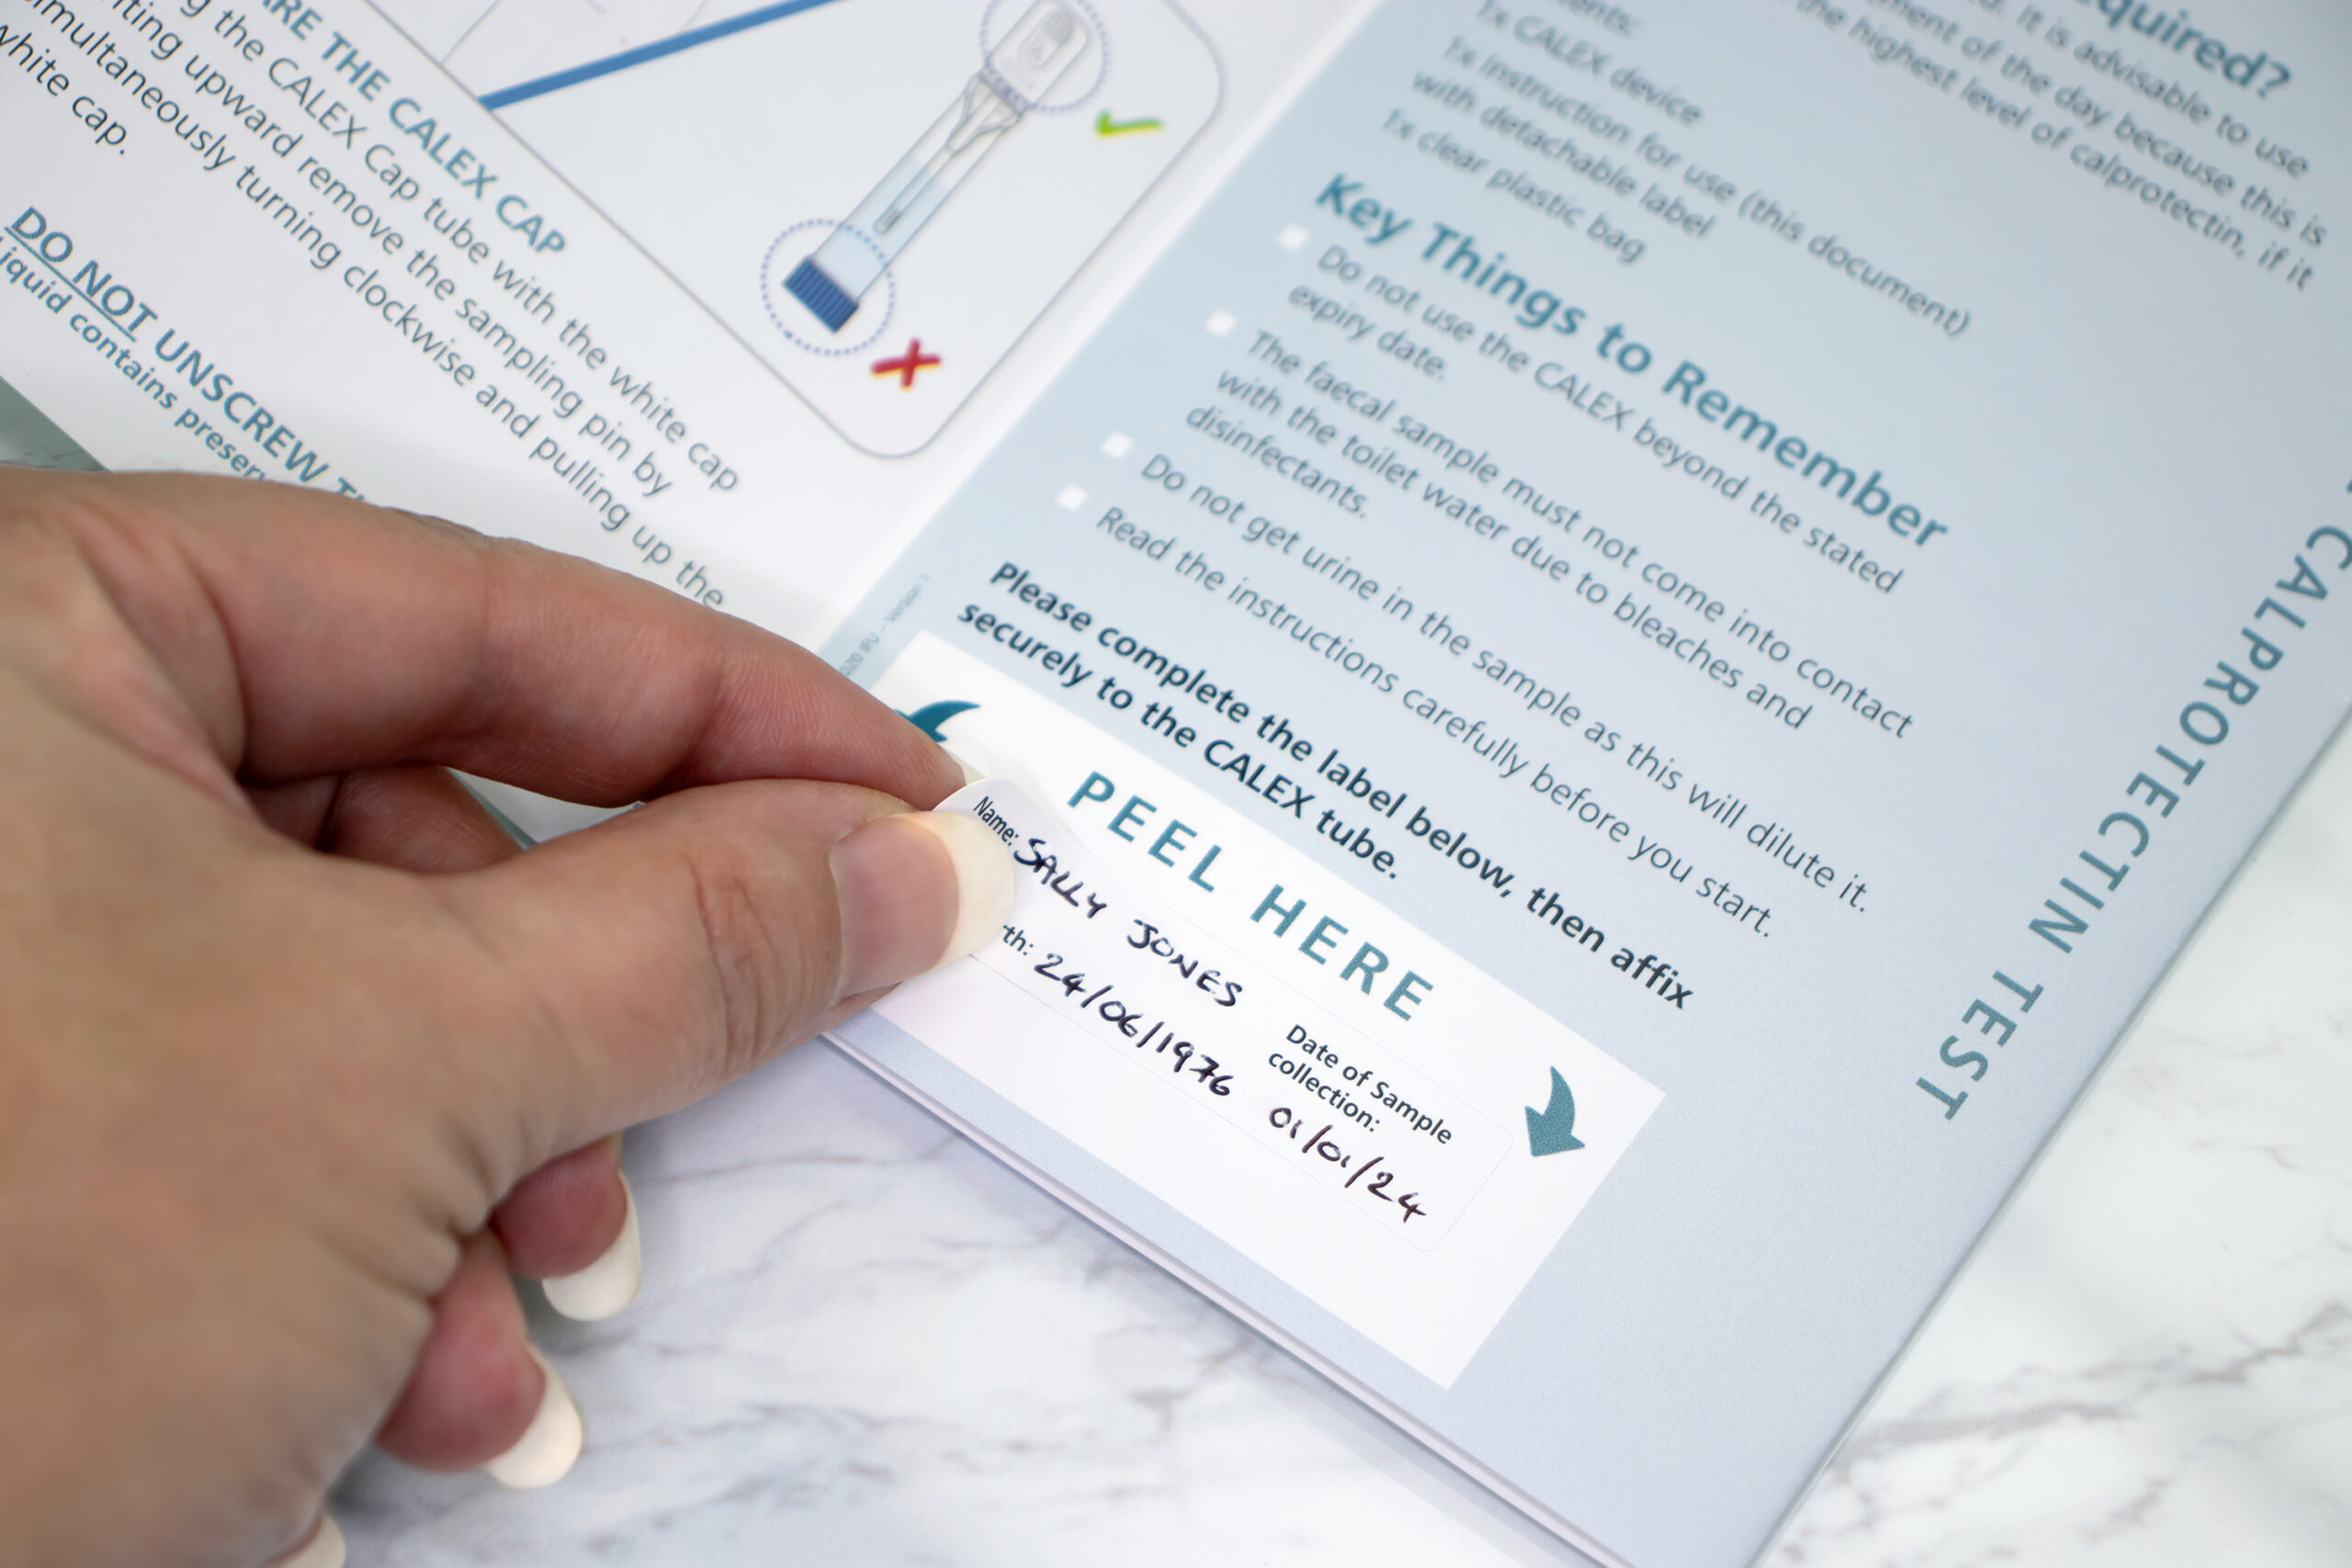 ARE THE CALEX CAP
the CALEX Cap tube with the white cap
upward remove the sampling pin by
simultaneously turning clockwise and pulling up the
white cap.
DO NOT UNSCREW
liquid contains
required?
It is advisable to use
of the day because this is
the highest level of calprotectin, if it
1x CALEX device
1x Instruction for use (this document)
with detachable label
1x clear plastic bag
Key Things to Remember
Do not use the CALEX beyond the stated
expiry date.
The faecal sample must not come into contact
with the toilet water due to bleaches and
disinfectants.
Do not get urine in the sample as this will dilute it.
Read the instructions carefully before you start.
Please complete the label below, then affix
securely to the CALEX tube.
PEEL HERE
Name: SALLY JONES
24/06/1976
Date of Sample
collection:
01/01/24
IFU - Version 1
CALPROTECTIN TEST